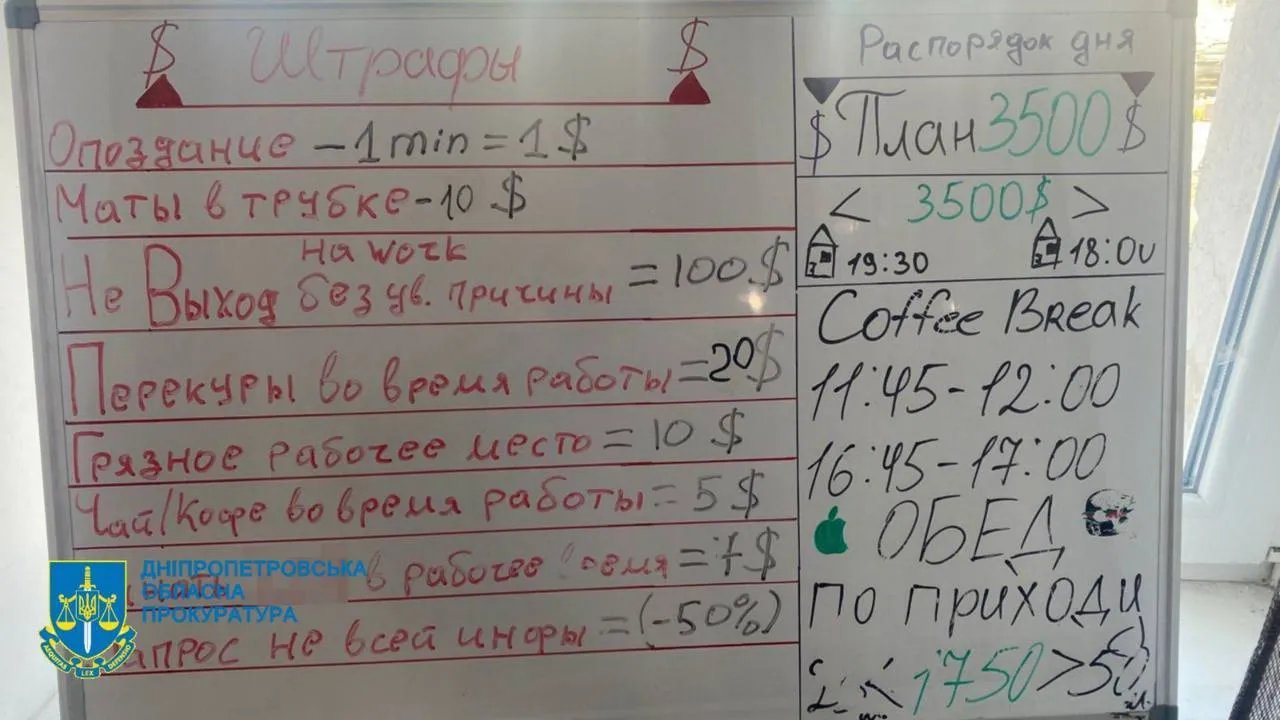 $ Штрафы $
Опоздание – 1 min = 1 $
Маты в трубке - 10 $
Не Выход на work без ув. причины = 100 $
Перекуры во время работы = 20 $
Грязное рабочее место = 10 $
Чай/Кофе во время работы = 5 $
в рабочее = 7 $
не всей инфы = (-50%)
Распорядок дня
$ План 3500 $
< 3500$ >
19:30 18:00
Coffee Break
11:45-12:00
16:45-17:00
ОБЕД
по приходу
< 1750 > 50
ДНІПРОПЕТРОВСЬКА
ОБЛАСНА
ПРОКУРАТУРА